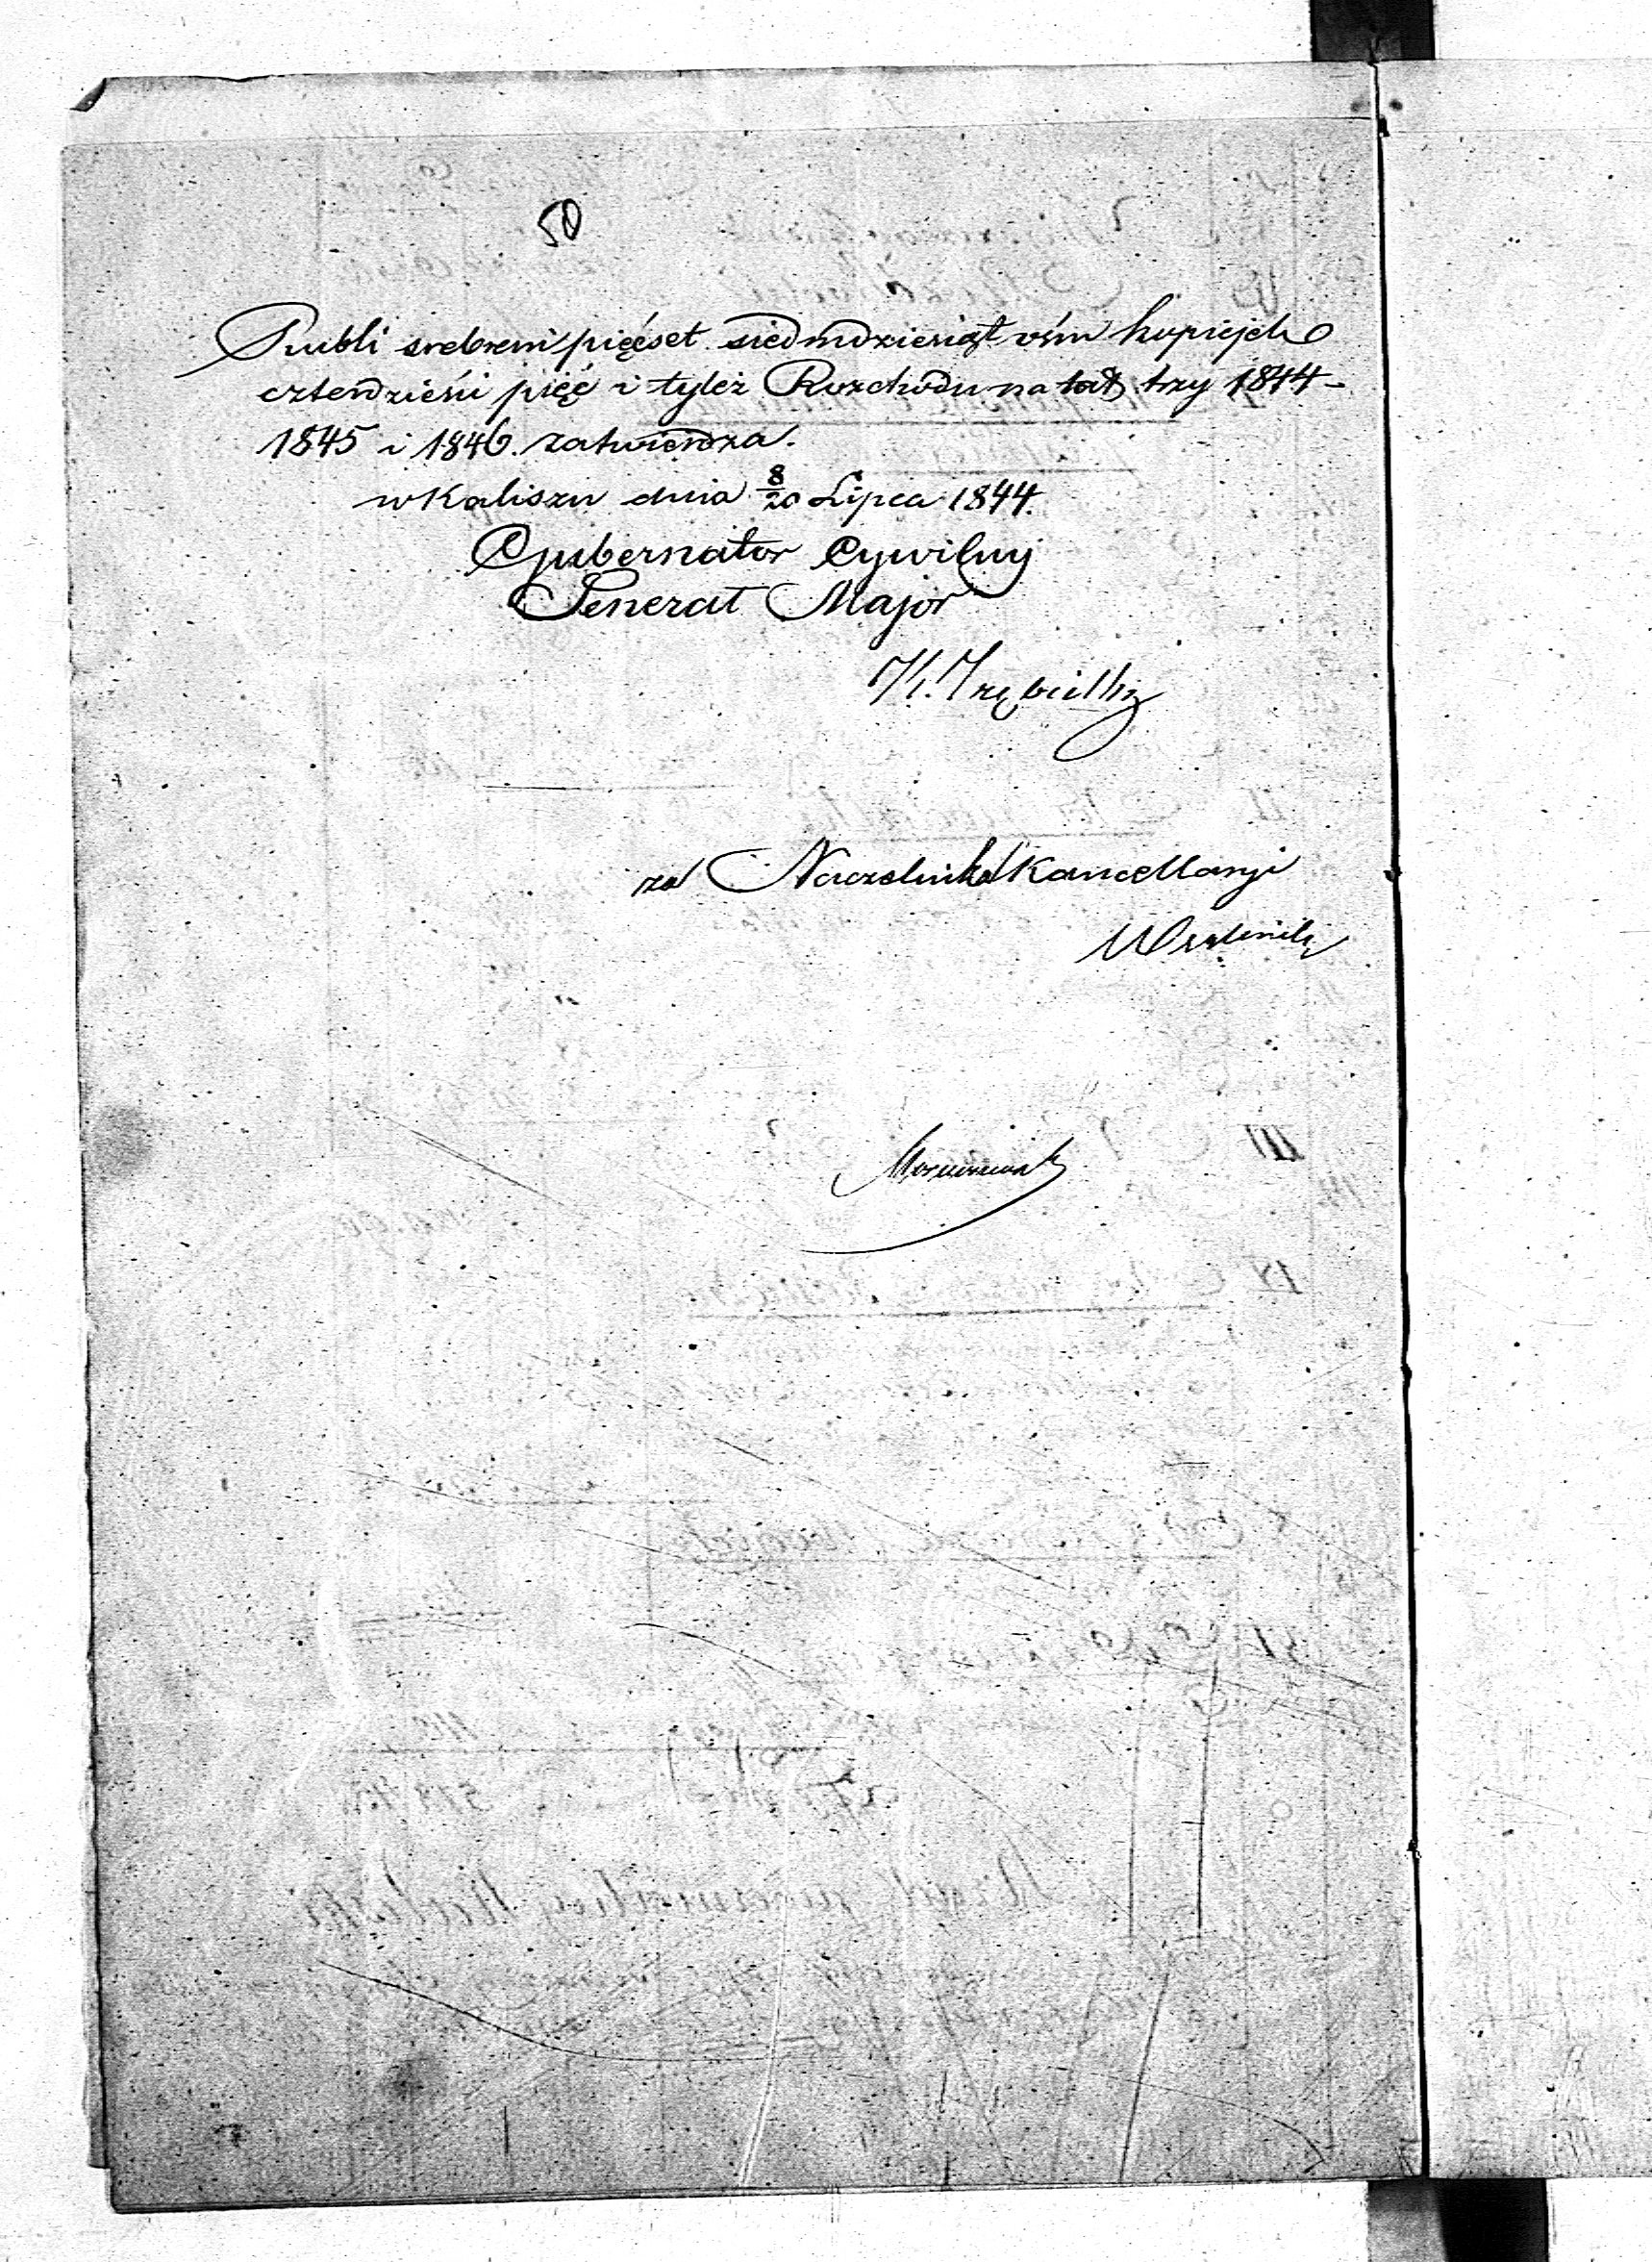 50
Rubli srebrem pięćset siedmdziesiąt ośm kopiejek
czterdzieści pięć i tyleż Rozchodu na lat trzy 1844
1845 i 1846. zatwierdza.
w Kaliszu dnia 8/20 Lipca 1844.
Gubernator Cywilny
Generał Major
za Naczelnika Kancellaryi